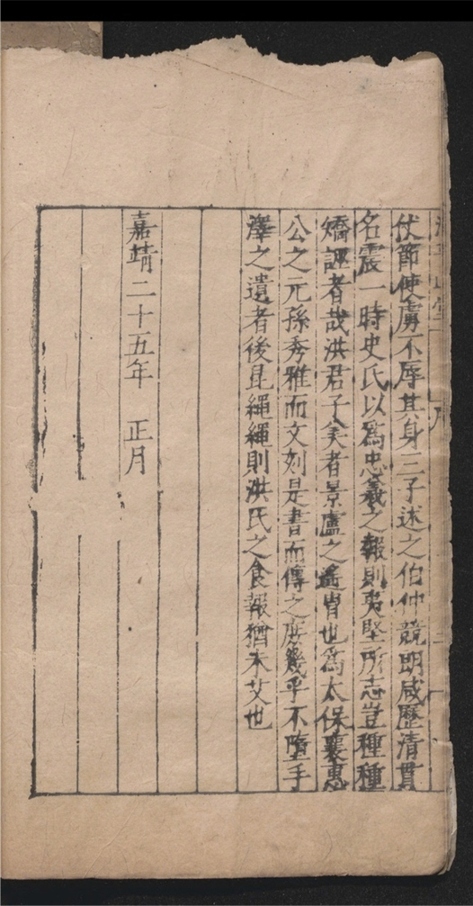 仗節使虜不辱其身三子述之伯仲競朗咸歷清貫
名震一時史氏以為忠義之報則夷堅所志豈種種
矯誣者哉洪君子美者景盧之遙胄也為太保襄惠
公之元孫秀雅而文刻是書而傳之庶幾乎不墮手
澤之遺者後昆繩繩則洪氏之食報猶未艾也
嘉靖二十五年 正月